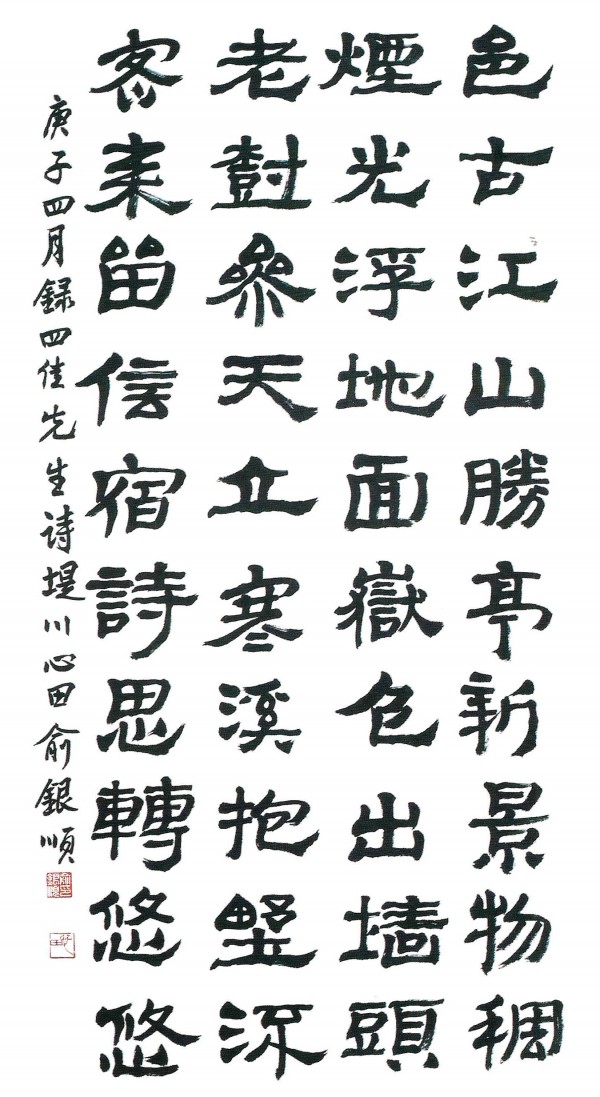 邑古江山勝亭新景物稠
煙光浮地面嶽色出墻頭
老樹參天立寒溪抱野流
客來留信宿詩思轉悠悠
庚子四月録四佳先生詩堤川心田俞銀順